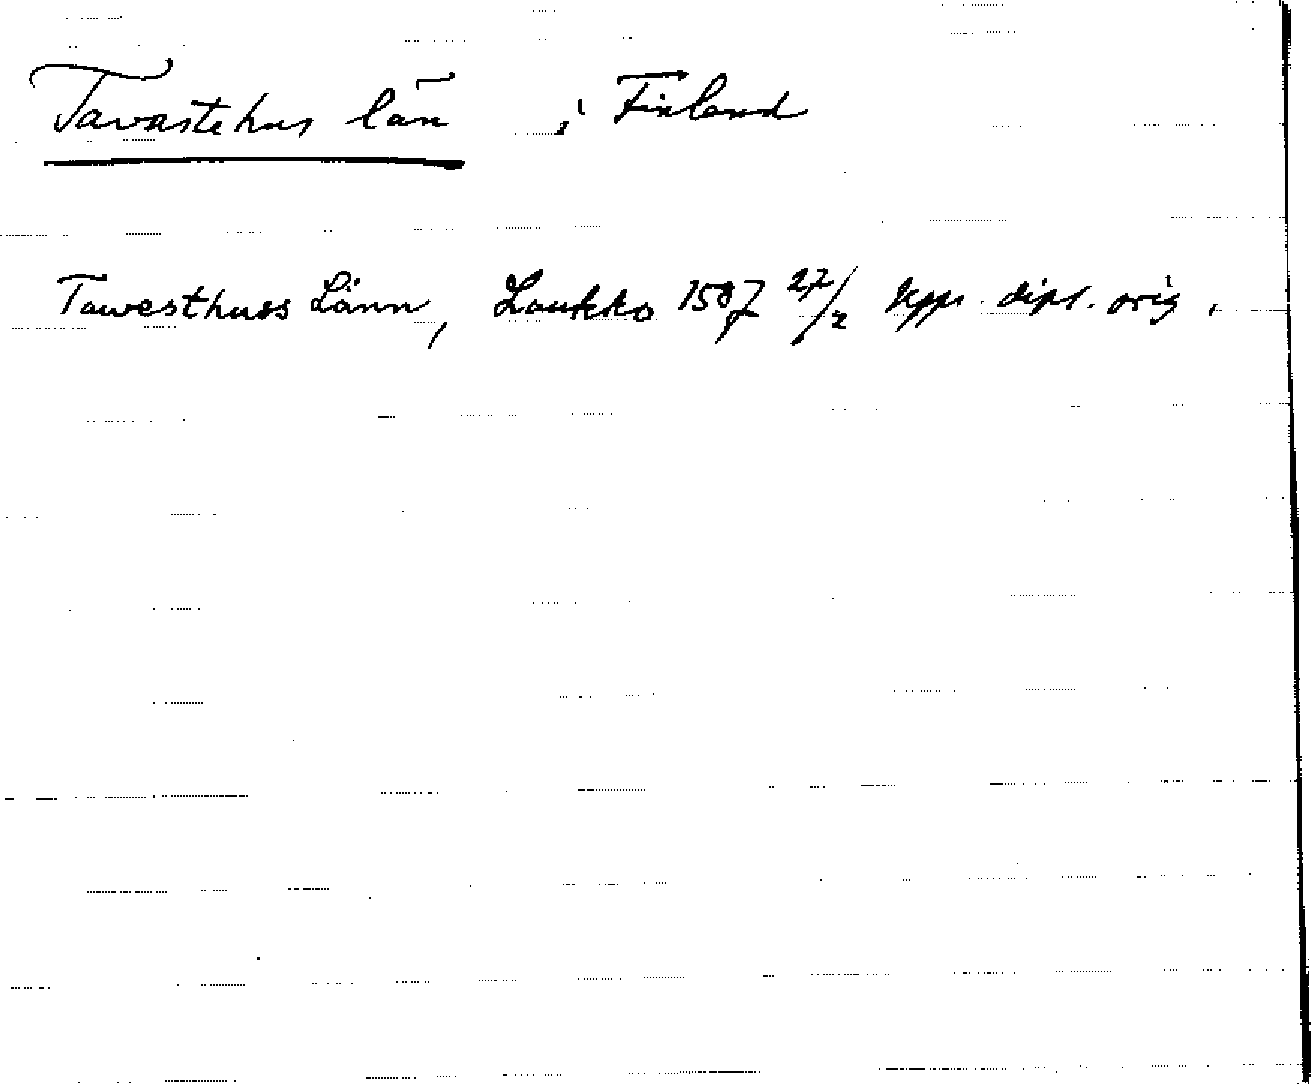 Tavastehus län i Finland
Tawesthuss Länn, Laukko 1507 27/2 dipl. orig.